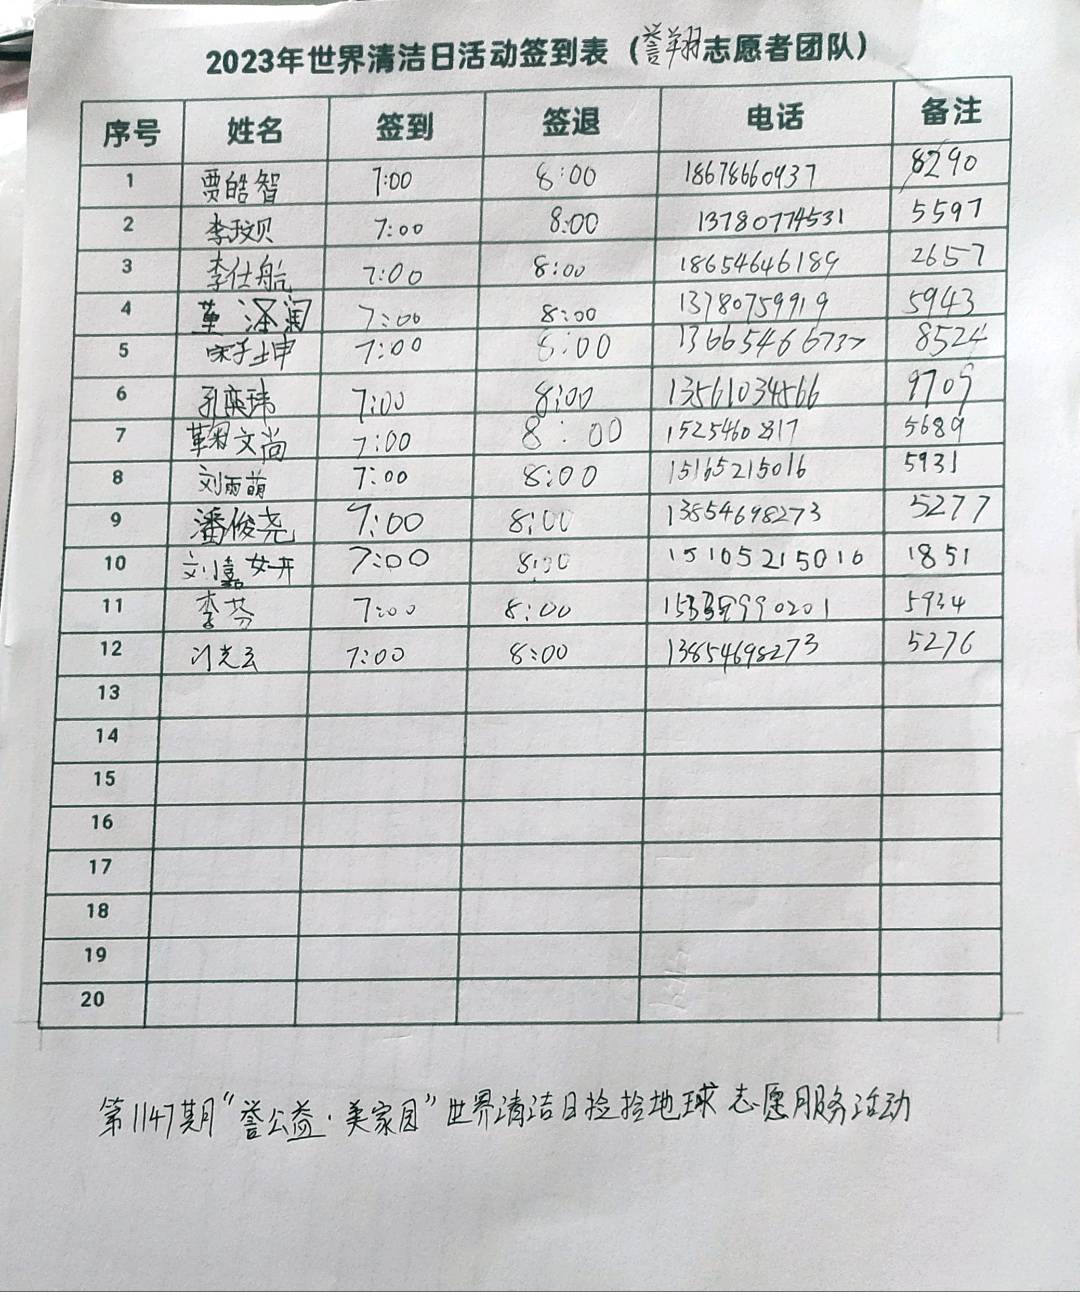 2023年世界清洁日活动签到表（誉翔志愿者团队）
序号 姓名 签到 签退 电话 备注
1 贾皓智 7:00 8:00 18678660937 8290
2 李玟贝 7:00 8:00 13780774531 5597
3 李仕航 7:00 8:00 18654646189 2657
4 董泽润 7:00 8:00 13780759919 5943
5 宋子坤 7:00 8:00 13665466737 8524
6 孔奕玮 7:00 8:00 13561034566 9709
7 文尚 7:00 8:00 1525460817 5689
8 刘雨萌 7:00 8:00 15165215016 5931
9 潘俊尧 7:00 8:00 13854698273 5277
10 刘嘉妍 7:00 8:00 15165215016 1851
11 李芬 7:00 8:00 5934
12 7:00 8:00 13854698273 5276
13
14
15
16
17
18
19
20
第1147期“誉公益·美家园”世界清洁日捡捡地球志愿服务活动